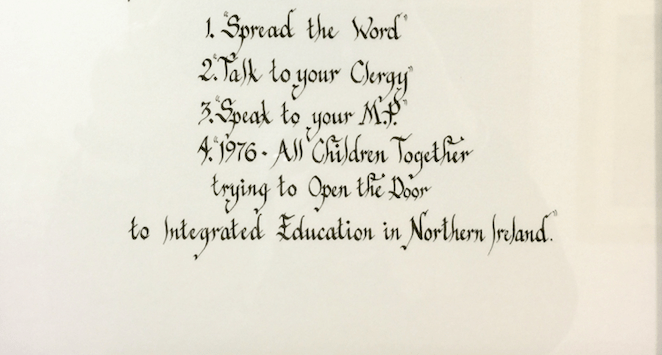 1. "Spread the Word"
2. "Talk to your Clergy"
3. "Speak to your M.P."
4. "1976 - All Children Together
trying to Open the Door
to Integrated Education in Northern Ireland."